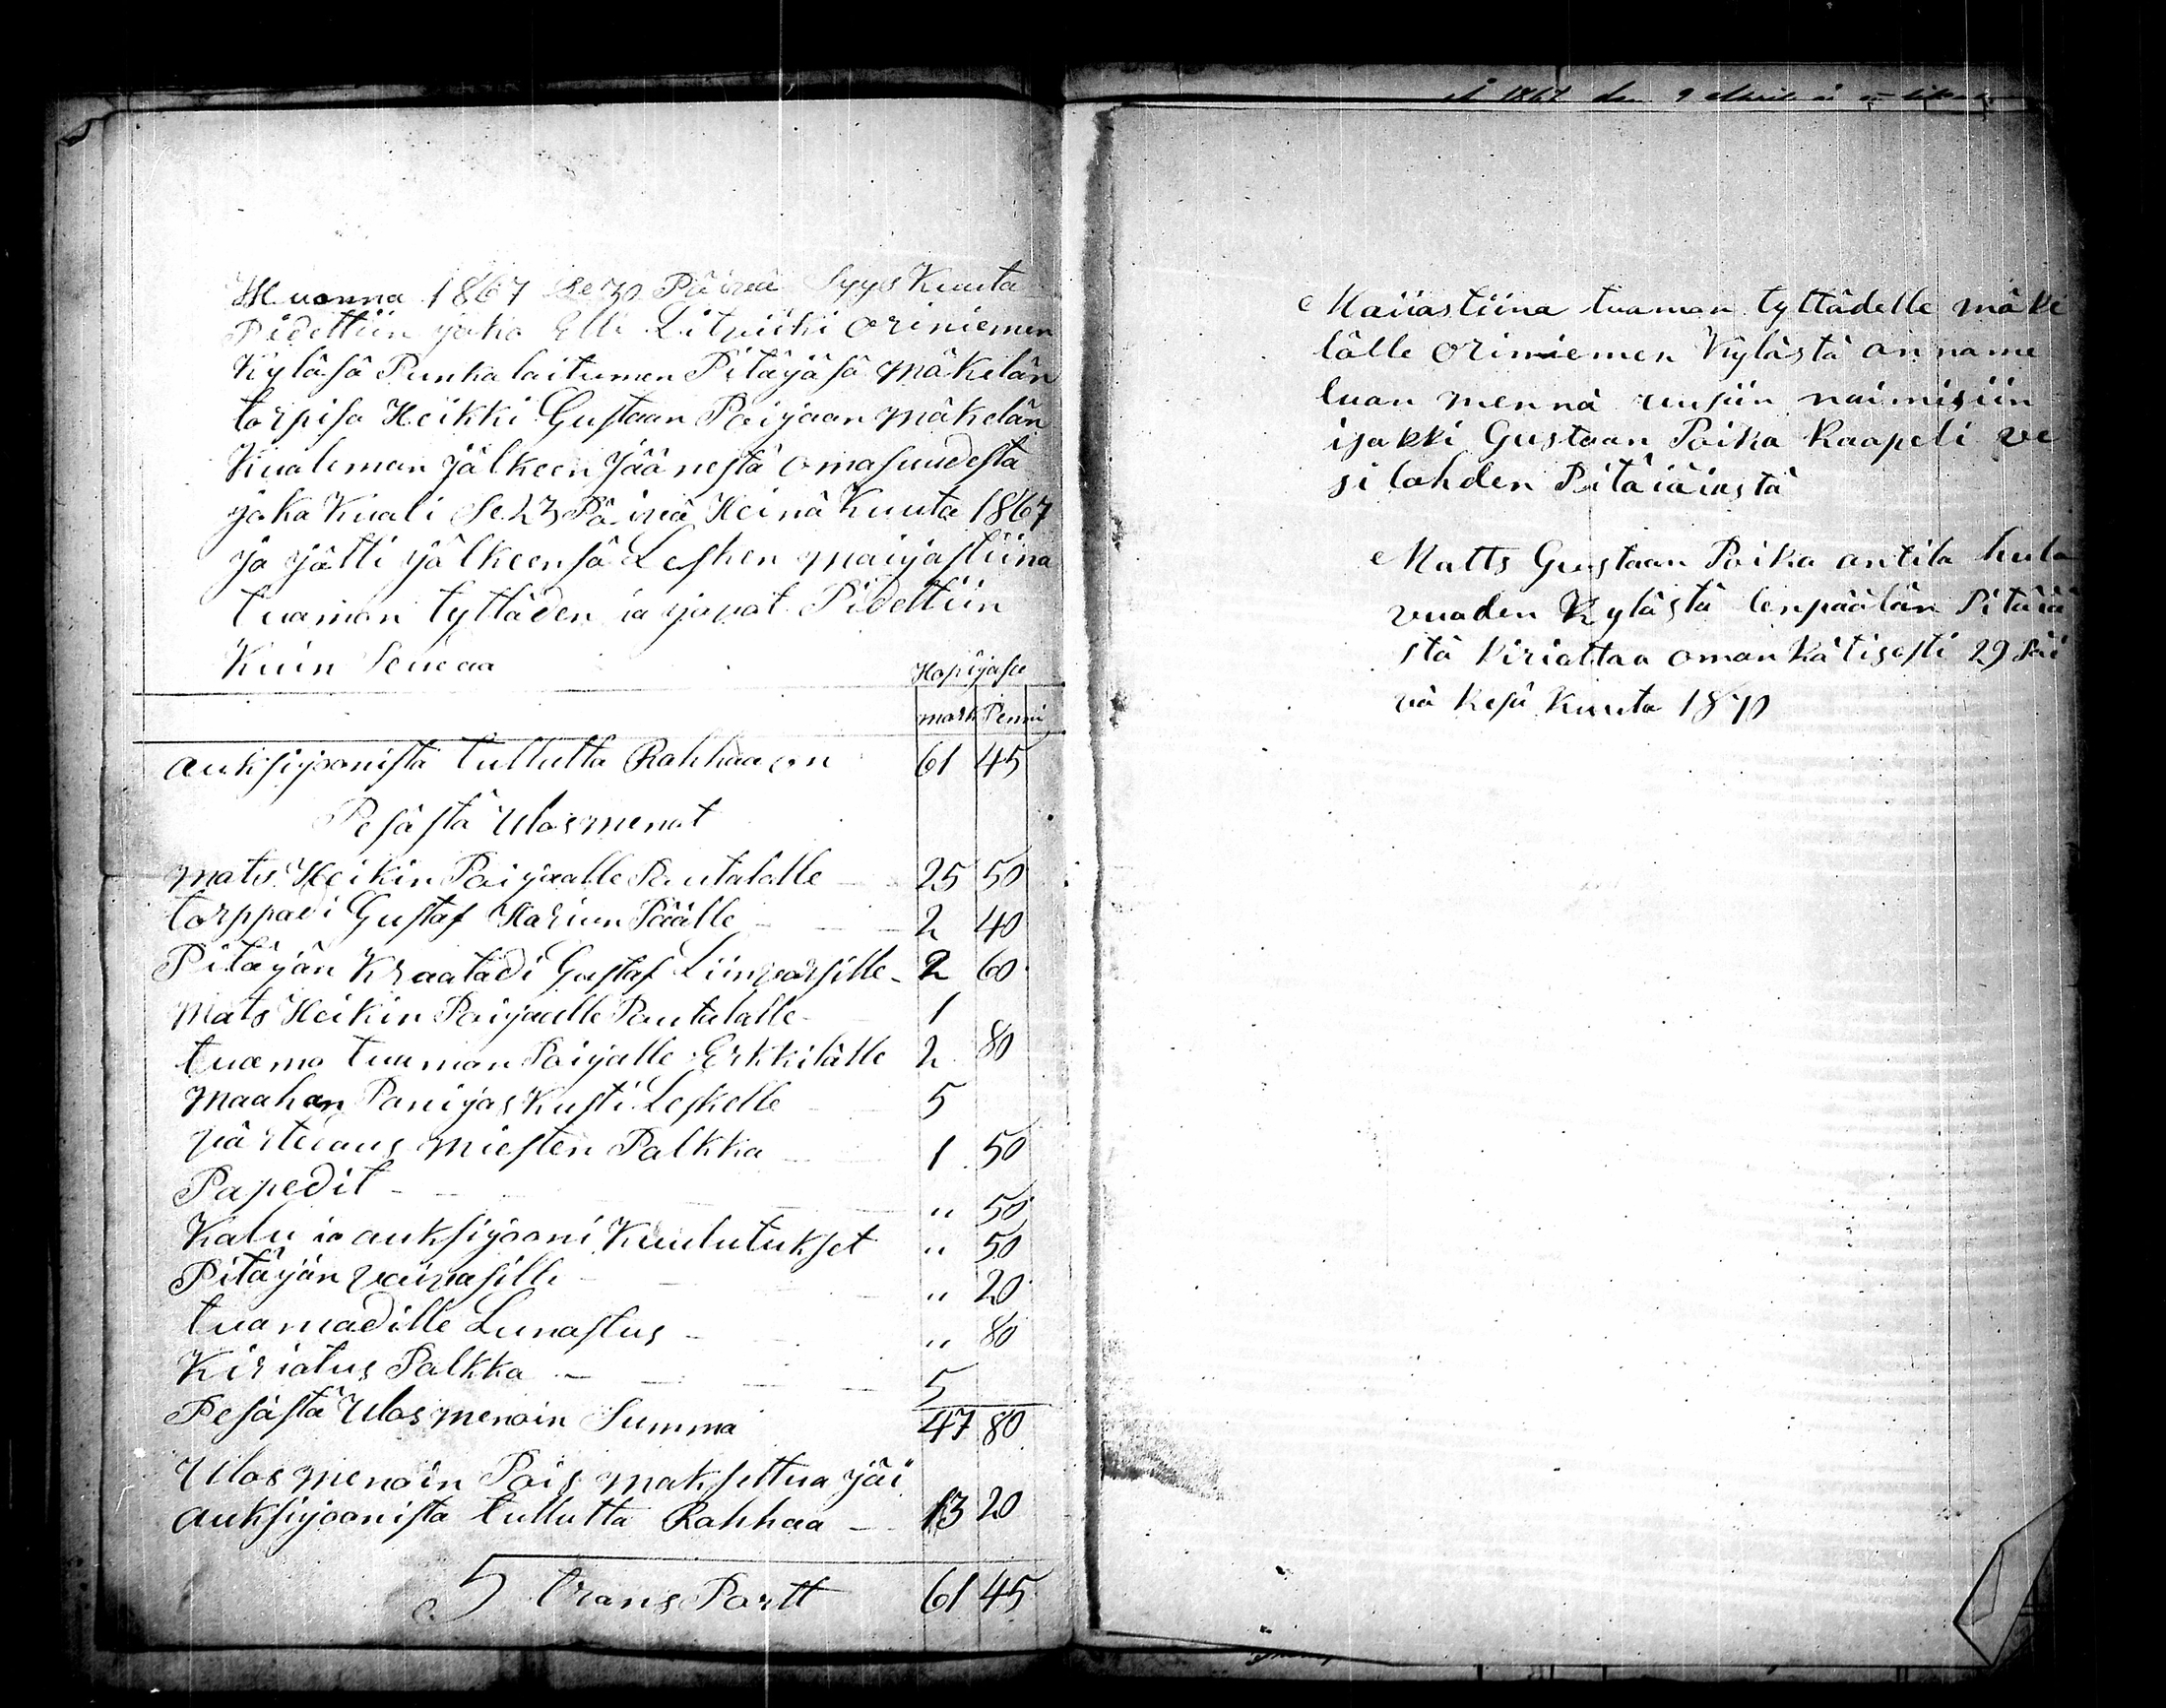 Wuonna 1867 Se 30 Päivä Syys Kuuta
Pidettiin jako Elli Litviiki oriniemen
Kyläsä Punkalaitumen Pitäjäsä mäkelän
torpisa Heikki Gustaan Poijaan mäkelän
Kualeman jälkeen jäänestä omasuudesta
joka Kuali Se 23 Päivä Heinä Kuuta 1867
ja jätti jälkeensä Lesken maijastiina
tuaman tyttäden ia javat Pidettiin
Kuin Seuraa
Hopijasa
mark Penni
auksijoonista tullutta Rahhaa on 61 45
Pesästä Ulosmenot
mats Heikin Poijaalle Pautalalle 25 50
torppadi Gustaf Harjun Päälle 2 40
Pitäjän Kraatadi Gustaf Liinvarsille 2 60
Mats Heikin Poijaalle Pautalalle 1
tuamo tuuman Poijalle Erkkilälle 2 80
maahan Panijas Kusti Leskelle 5
värteeraus miesten Palkka 1 50
Papedit " 50
Kalu ia auksijooni Kuulutukset " 50
Pitäjän vaivasille " 20
tuamadille Lunastus " 80
Kiriatus Palkka 5
Pesästä Ulosmenoin Summa 47 80
Ulosmenoin Pois maksettua jäi
auksijoonista tullutta Rahhaa 13 20
5 transPortt 61 45
Å 1867 den 9
Maiiastiina tuaman tyttädelle mäke
lälle oriniemen Kylästä anname
luan mennä uusiin naimisiin
isakki Gustaan Poika Kaapeli ve
si lahden Pitäiäiastä
Matts Gustaan Poika antila hula
vuaden Kylästä lenpäälän Pitäiä
stä kiriattaa oman kätisesti 29 Päi
vä kesä kuuta 1870